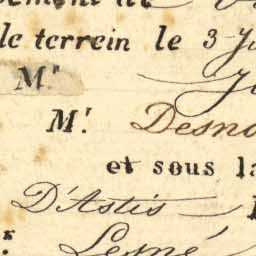 le terrein le 3 J
Mr
Mr. Desno
et sous la
D'Astis
Lesné